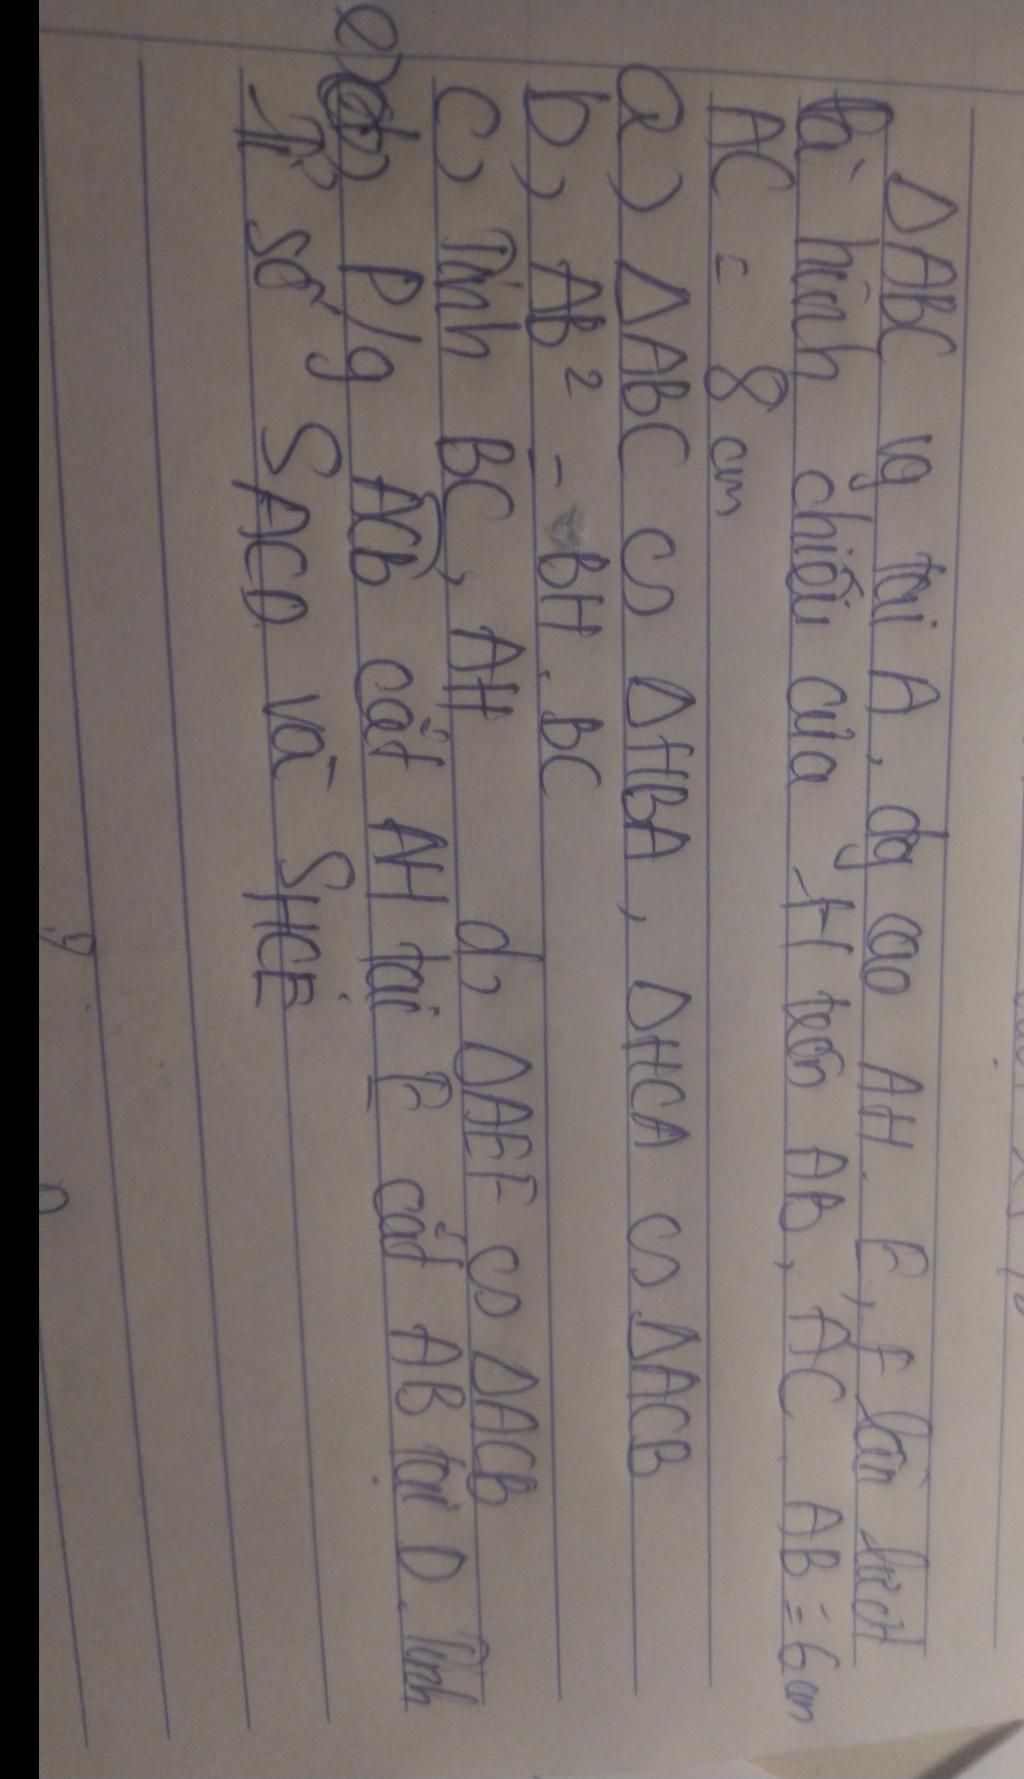 ΔABC vg tại A, đg cao AH. E, F lần lượt
là hình chiếu của H trên AB, AC. AB = 6 cm
AC = 8 cm
a) ΔABC ᔕ ΔHBA, ΔHCA ᔕ ΔACB
b, AB² = BH.BC
c, Tính BC, AH d, ΔAEF ᔕ ΔACB
e) P/g ACB cắt AH tại E cắt AB tại D. Tính
Tỉ số SACD và SHCE